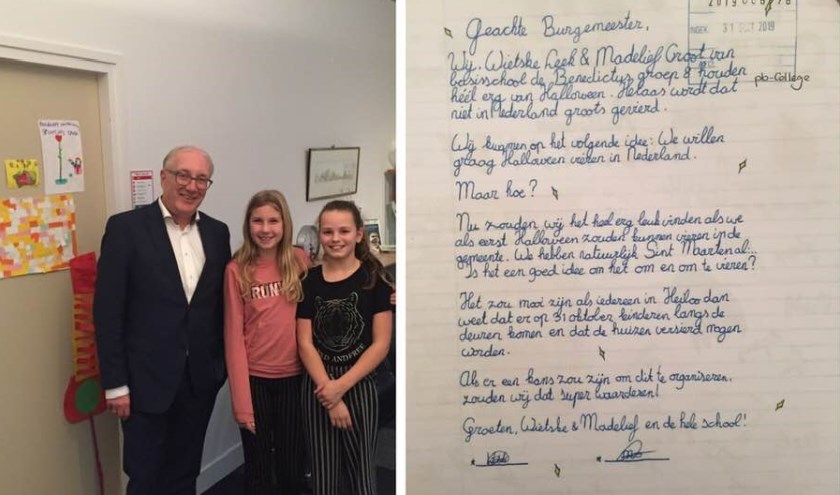 RUN
WILD
2019 006976
INGEK. 31 OCT 2019
pb-College
Geachte Burgemeester,
Wij, Wietske Leek & Madelief Groot van
basisschool de Benedictus groep 8 houden
héél erg van Halloween. Helaas wordt dat
niet in Nederland groots gevierd.
Wij kwamen op het volgende idee: We willen
graag Halloween vieren in Nederland.
Maar hoe?
Nu zouden wij het heel erg leuk vinden als we
als eerst Halloween zouden kunnen vieren in de
gemeente. We hebben natuurlijk Sint Maarten al...
Is het een goed idee om het om en om te vieren?
Het zou mooi zijn als iedereen in Heiloo dan
weet dat er op 31 oktober kinderen langs de
deuren komen en dat de huizen versierd mogen
worden.
Als er een kans zou zijn om dit te organiseren,
zouden wij dat super waarderen!
Groeten, Wietske & Madelief en de hele school!